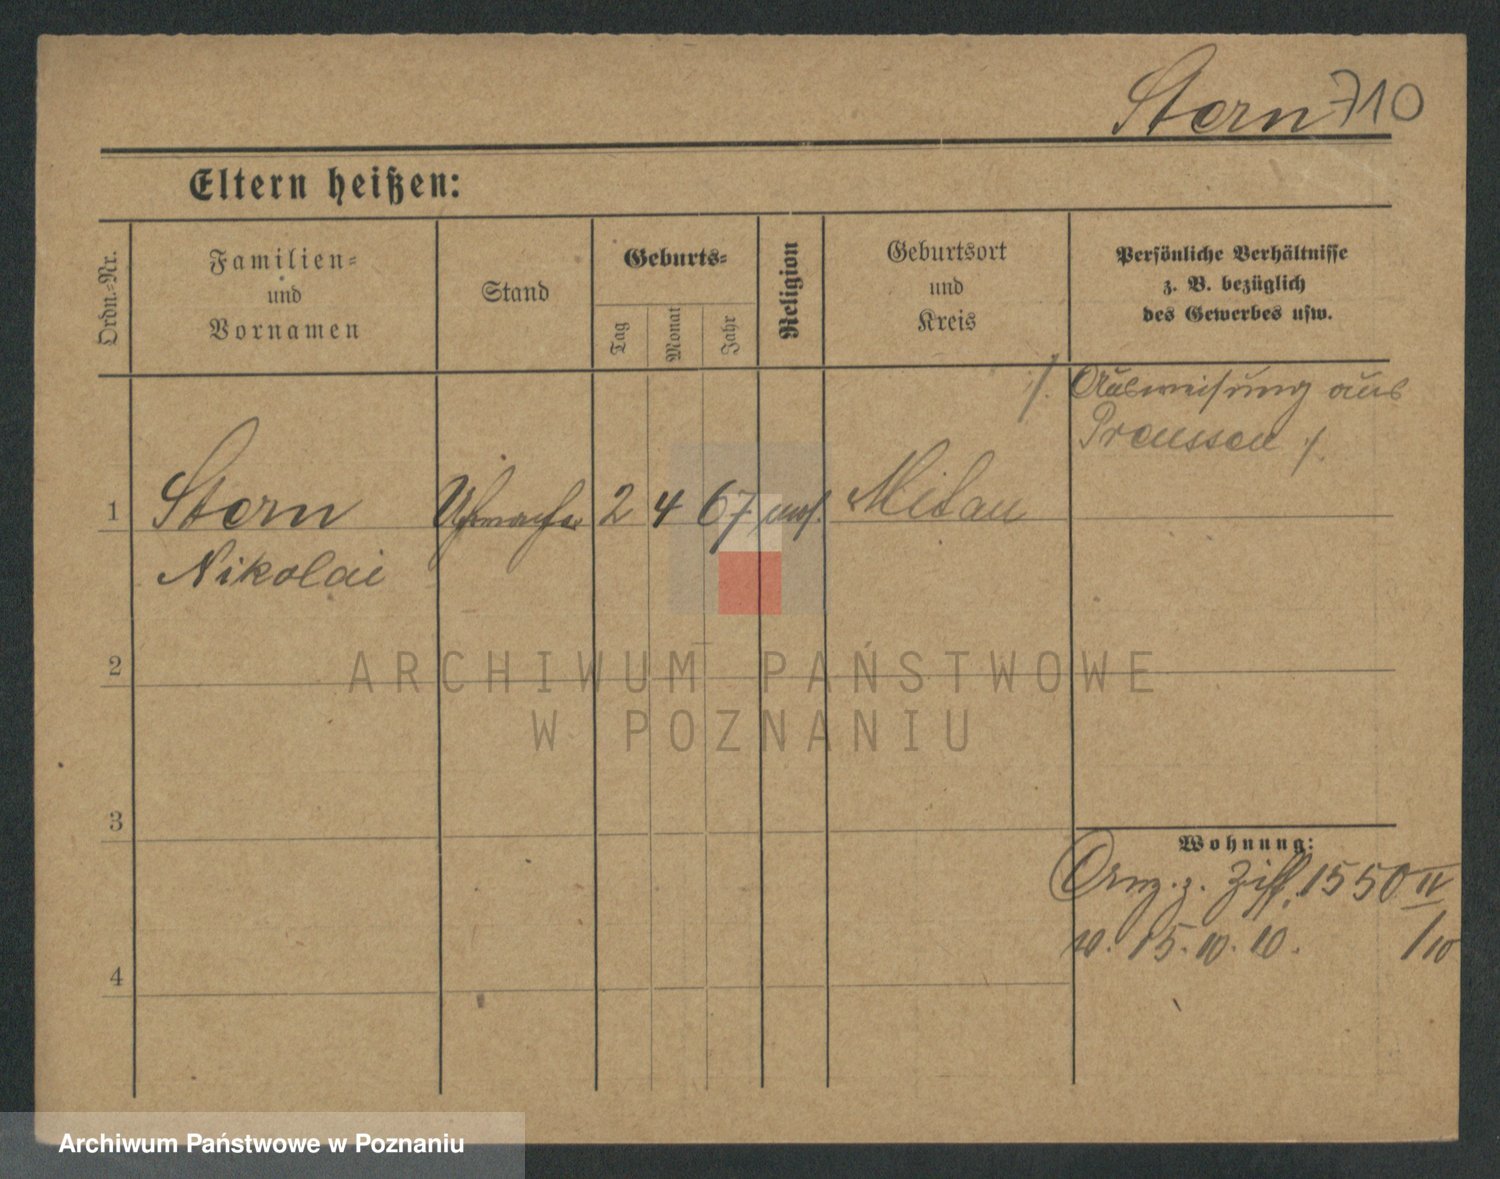 Stern 710
Eltern heißen:
Ordn.-Nr.
Familien-
und
Vornamen
Stand
Geburts-
Tag
Monat
Jahr
Religion
Geburtsort
und
Kreis
Persönliche Verhältnisse
z. B. bezüglich
des Gewerbes usw.
/. Ausweisung aus
Preussen /.
1 Stern Uhrmacher 2 4 67 mos. Mitau
Nikolai
2
ARCHIWUM PAŃSTWOWE
W POZNANIU
3
Wohnung:
z. Ziff. 1550 IV
15. 10. 10. /10
4
Archiwum Państwowe w Poznaniu